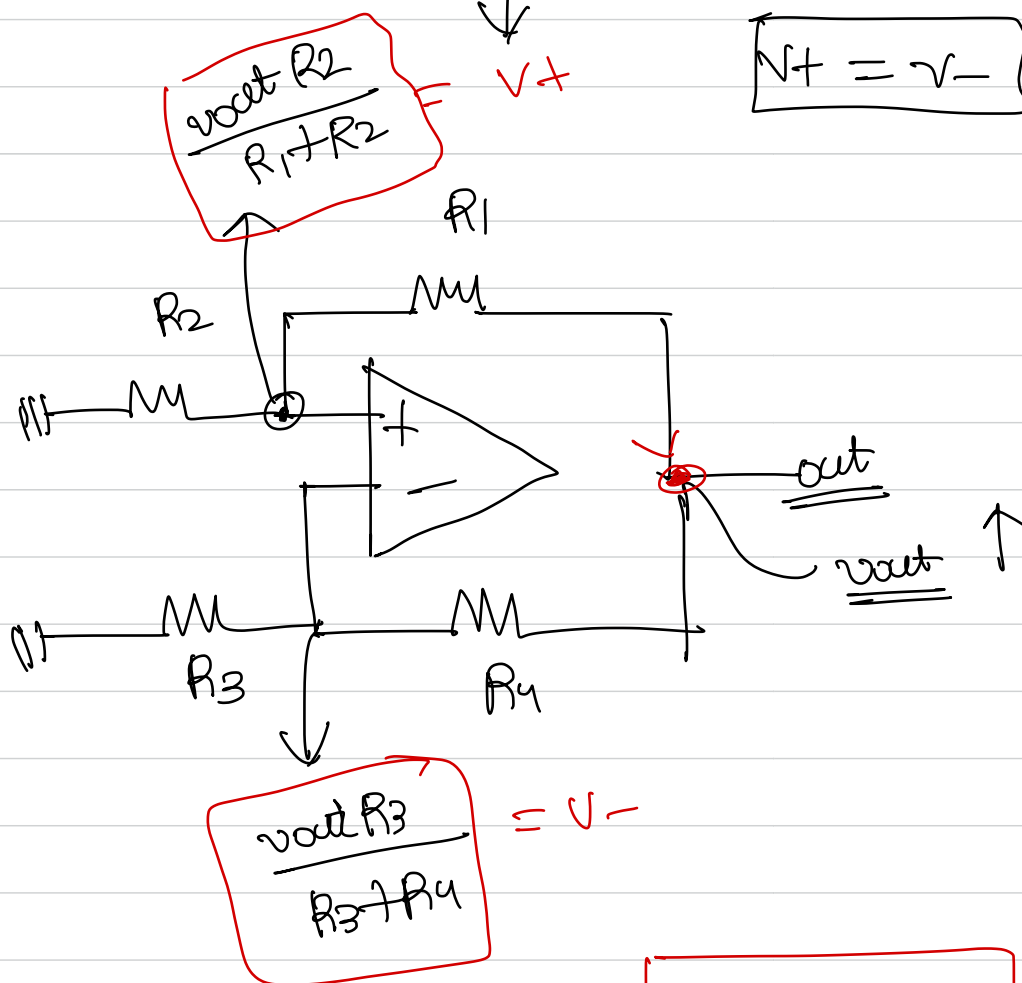 vout R2
R1+R2
= V+
V+ = V- (
R1
R2
+
-
V
out
vout
R3
R4
vout R3
R3+R4
= V-